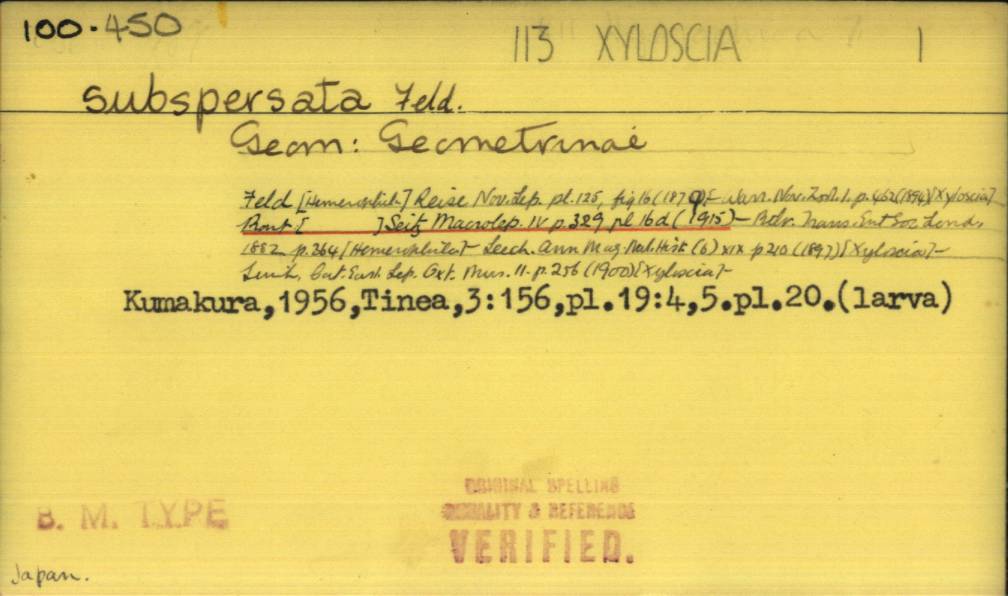 100.450
113 XYLOSCIA 1
subspersata Feld.
Geom: Geometrinae
Feld [Hemerophila] Reise Nov. Lep. pl. 125, fig 16 (1879)- Warr. Nov. Zool. 1. p. 462 (1894) [Xyloscia]
Prout [ ] Seitz Macrolep. IV p. 329 pl 16d (1915)- Butlr. Trans. Ent Soc. Lond.
1882 p. 364 [Hemerophila]- Leech. Ann Mag Nat. Hist (6) XIX p 210 (1897) [Xyloscia]-
Swinh. Cat. East. Lep. Oxf. Mus. II. p. 256 (1900) [Xyloscia]-
Kumakura,1956,Tinea,3:156,pl.19:4,5.pl.20.(larva)
ORIGINAL SPELLING
LOCALITY & REFERENCE
VERIFIED.
B. M. TYPE
Japan.